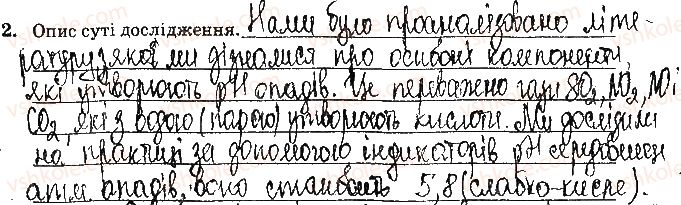 2. Опис суті дослідження. Нами було проаналізовано літе-
ратуру, з якої ми дізналися про основні компоненти,
які утворюють pH опадів. Це переважно гази SO2, NO2, NO і
CO2, які з водою (парою) утворюють кислоти. Ми дослідили
на практиці за допомогою індикаторів pH середовищ
атм опадів, воно становить 5,8 (слабко-кисле).